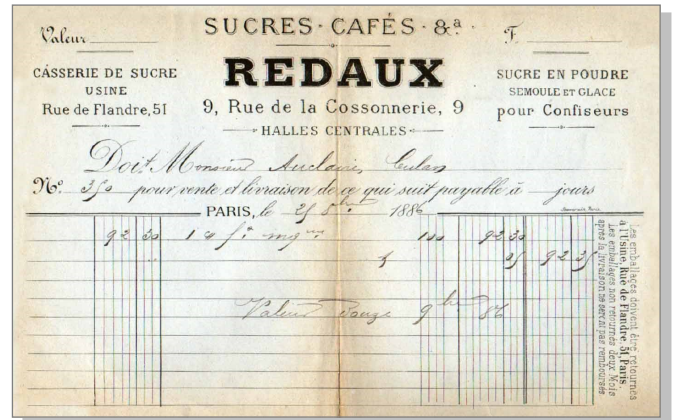 Valeur
SUCRES · CAFÉS · &ª
F.
CASSERIE DE SUCRE
USINE
Rue de Flandre, 51
REDAUX
9, Rue de la Cossonnerie, 9
HALLES CENTRALES
SUCRE EN POUDRE
SEMOULE ET GLACE
pour Confiseurs
Doit Monsieur Auclair, Culan
Nº 350 pour vente et livraison de ce qui suit payable à jours
PARIS, le 25 8bre 1886
92 30 100 92 30
92 35
Valeur Douze 9bre 86
Les emballages doivent être retournés
à l'Usine, Rue de Flandre, 51, Paris.
Les emballages non retournés deux Mois
après la livraison ne seront pas remboursés